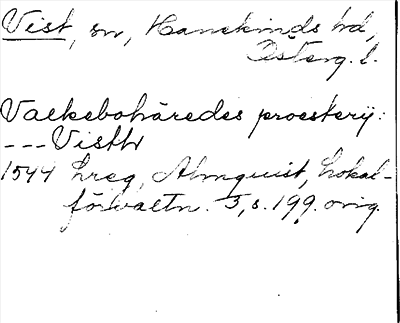 Vist, sn, Hanekinds hd,
Österg. l.
Valkebohäredes proesterij:
---Visth
1544 Lreg, Almquist, Lokal-
förvaltn. 3, s. 199. orig.